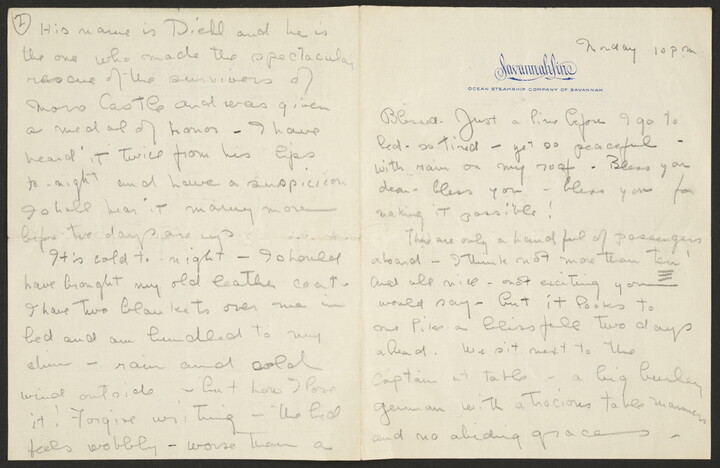 Monday 10 p.m.
Savannah Line
OCEAN STEAMSHIP COMPANY OF SAVANNAH
Blessed. Just a line before I go to
bed - so tired - yet so peaceful -
with rain on my roof. Bless you
dear - bless you - bless you for
making it possible!
There are only a handful of passengers
aboard - I think not more than ten
and all nice - not exciting you
would say - but it looks to
me like a blissfull two days
ahead. We sit next to the
captain at table - a big burley
german with atrocious table manners
and no abiding graces -
I
His name is Diehl and he is
the one who made the spectacular
rescue of the survivors of
Moro Castle and was given
a medal of honor - I have
heard it twice from his lips
to-night and have a suspicion
I shall hear it many more
before two days are up
It's cold to-night - I should
have brought my old leather coat -
I have two blankets over me in
bed and am bundled to my
chin - rain and cold
wind outside - but how I love
it! Forgive writing - the bed
feels wobbly - worse than a